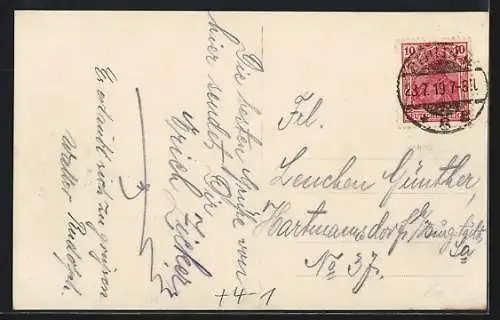 Die besten Grüße von
hier sendet Dir
Erich Zicker
Er erlaubt sich zu grüßen
Walter Rudolph.
+4-1
10 10
23.7.19.7-8N.
Frl.
Lenchen Günther,
Hartmannsdorf b/Burgstädt
Sa
No 37.